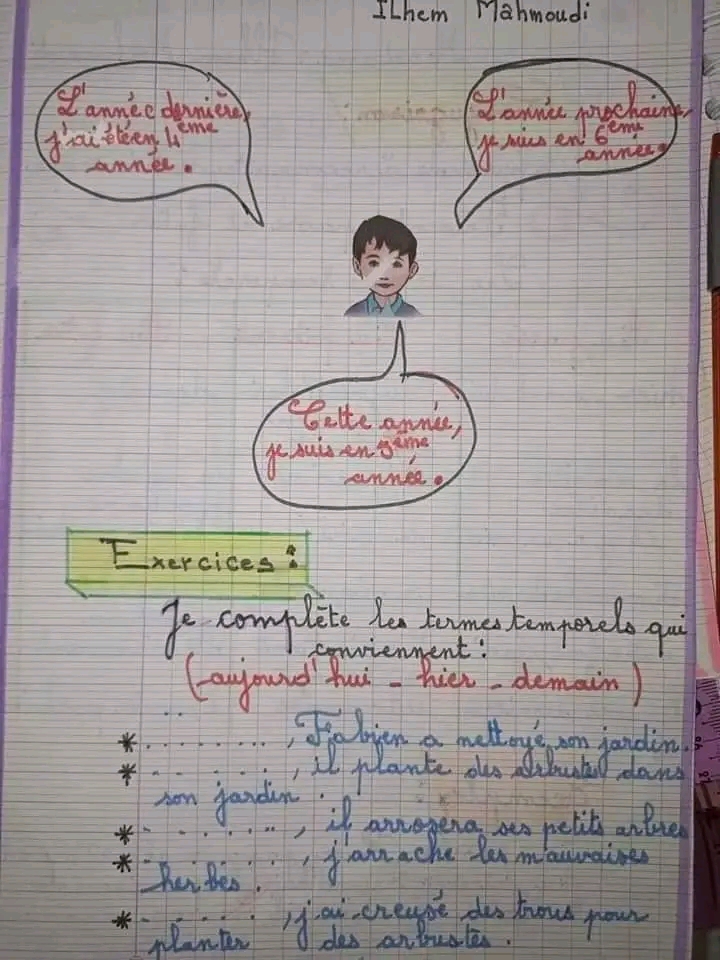 ILhem Mahmoudi
L'année dernière,
j'ai été en 4ème
année.
L'année prochaine,
je suis en 6ème
année.
Cette année,
je suis en 5ème
année.
Exercices :
Je complète les termes temporels qui
conviennent :
(aujourd'hui - hier - demain)
* . . . . . . . . , Fabien a nettoyé son jardin.
* . . . . . . . , il plante des arbustes dans
son jardin .
* . . . . . . . , il arrosera ses petits arbres
* . . . . . . . , j'arrache les mauvaises
herbes .
* . . . . . . , j'ai creusé des trous pour
planter des arbustes .